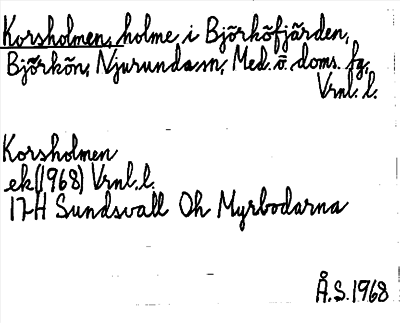 Korsholmen, holme i Björköfjärden,
Björkön, Njurunda sn, Med. ö. doms. fg,
Vrnl. l.
Korsholmen
ek (1968) Vrnl. l.
17H Sundsvall Öh Myrbodarna
Å.S. 1968